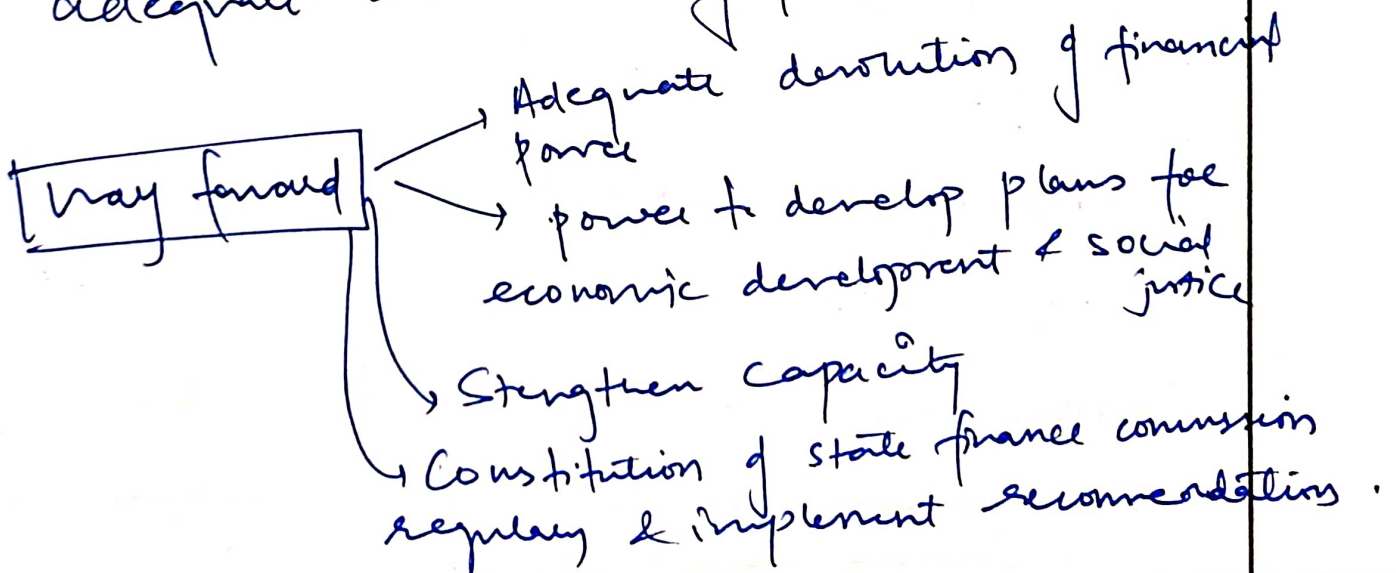 adequate
Adequate devolution of financial
power
Way forward
power to develop plans for
economic development & social
justice
Stengthen capacity
Constitution of state finance commission
regulary & implement recommendations.